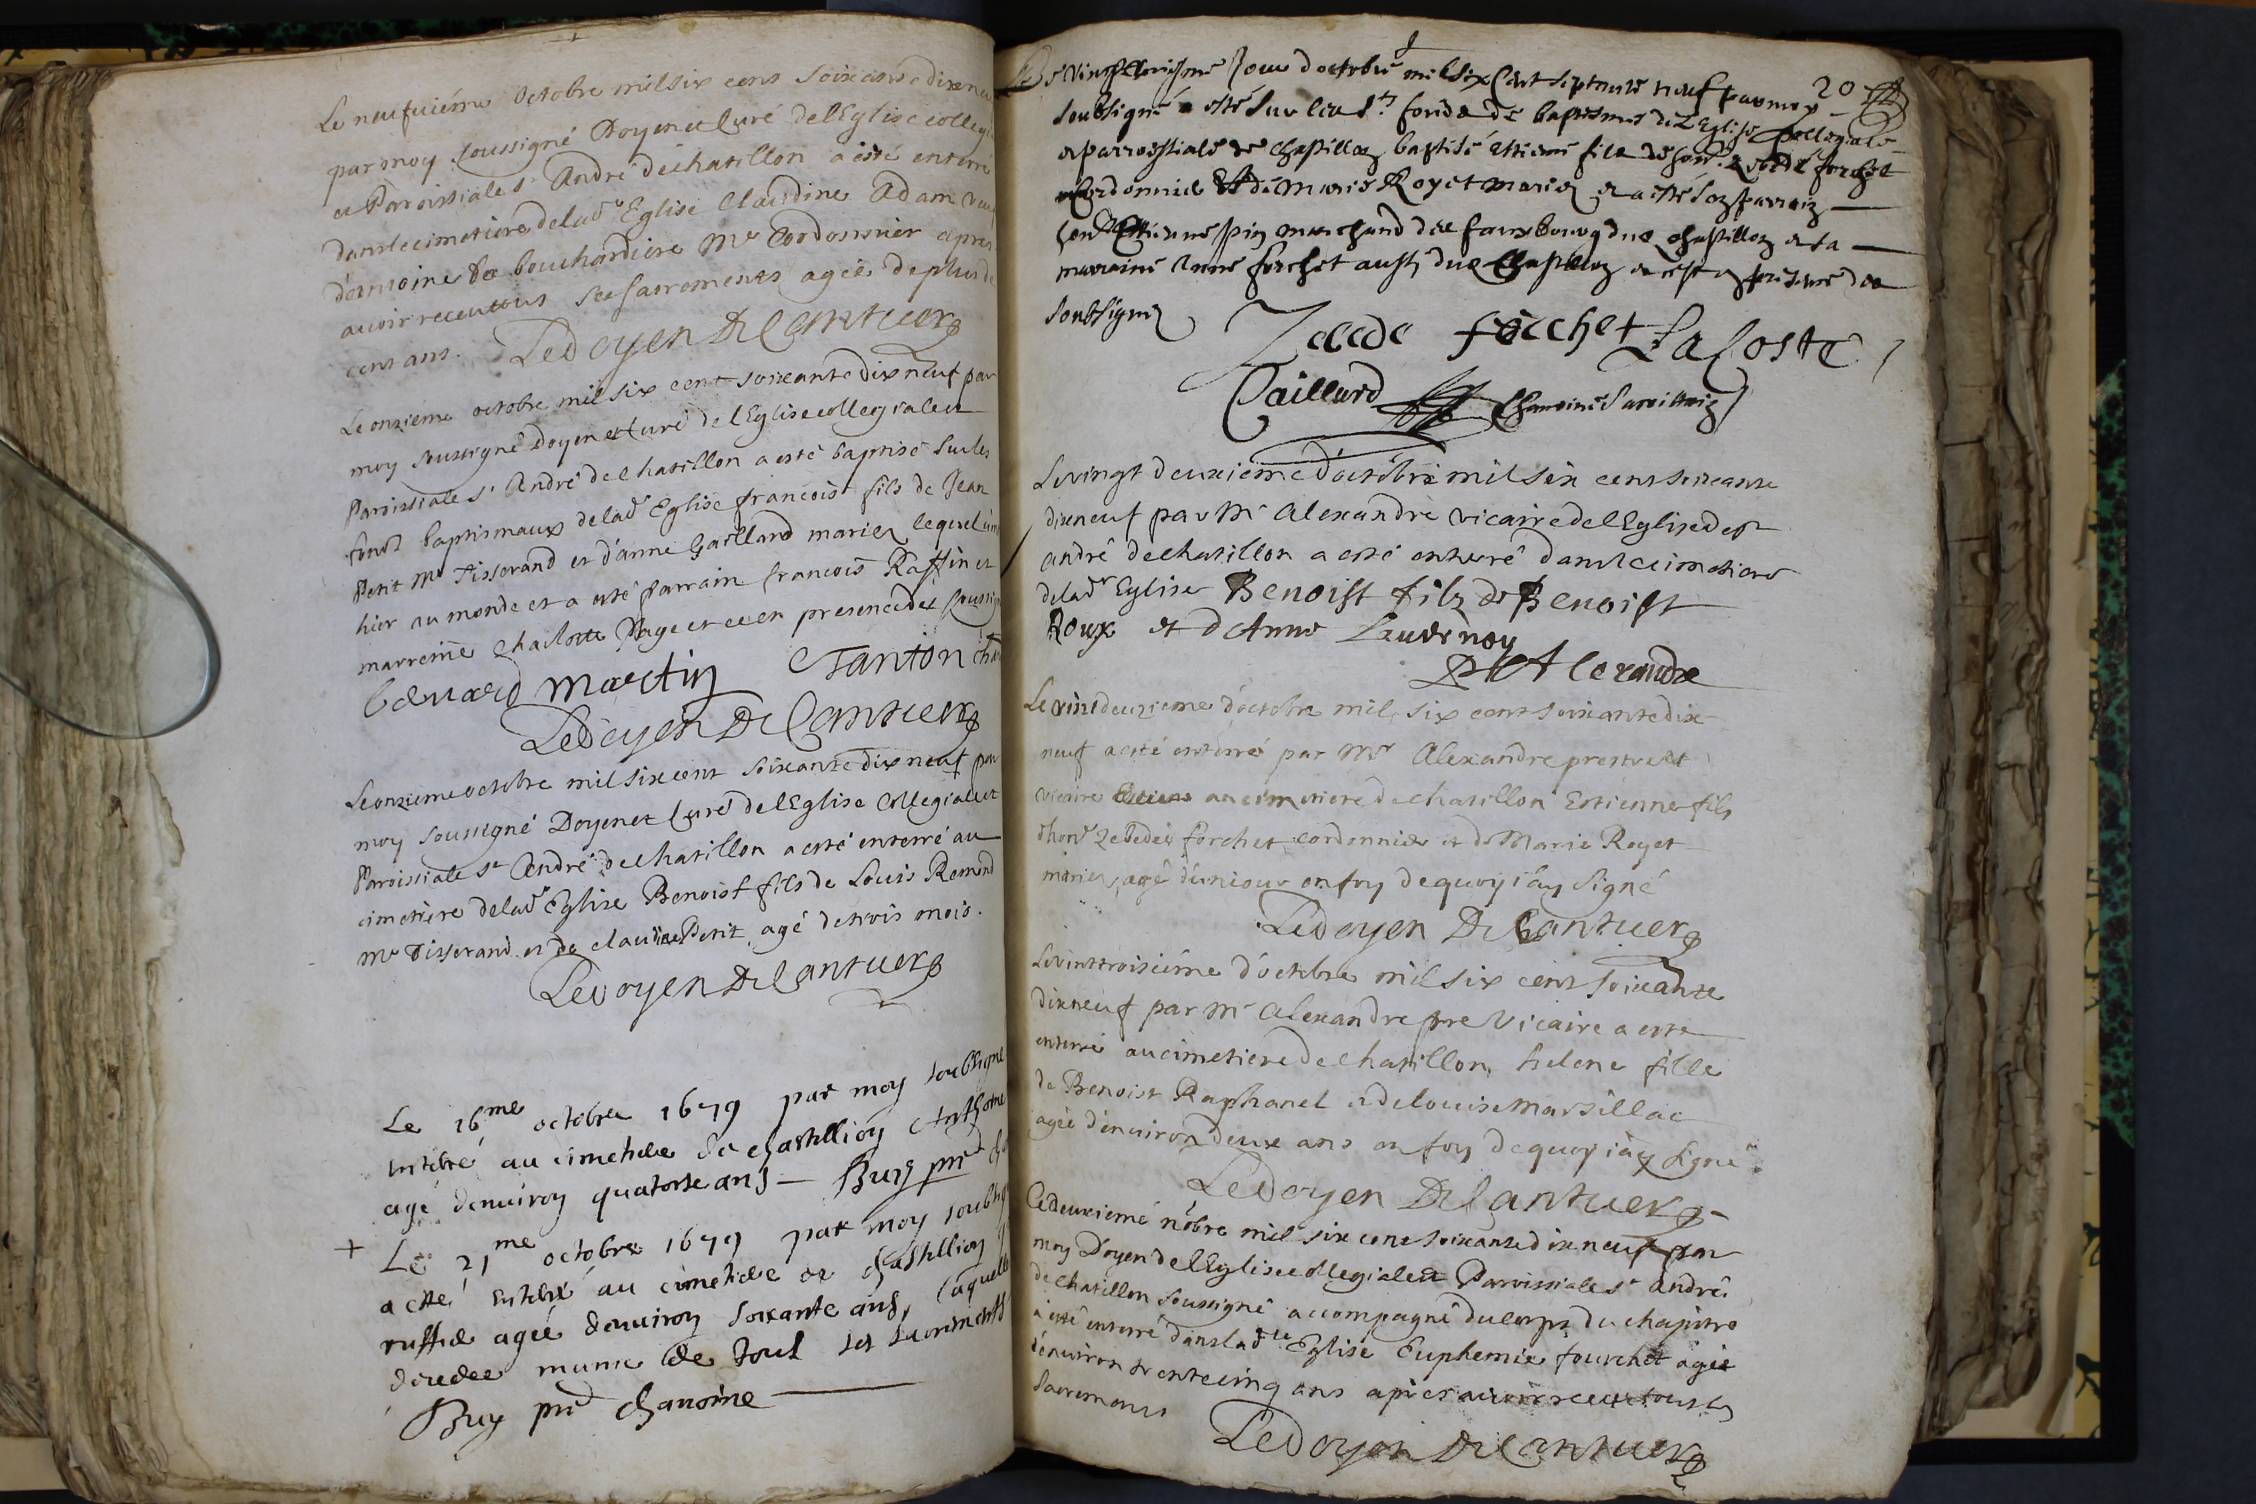 Le neufuiéme octobre mil six cens soixante dixneu
par moy soussigné Doyen et Curé de l'Eglise collegi
et Paroissiale st André de chatillon a esté enterré
dans le cimetiere de lad Eglise Claudine Adam veu
d'antoine bouchardiere Mr Cordonnier apres
auoir receu tous ses sacrements agée de plus de
cent ans. Le Doyen De Cantuer
Le onzieme octobre mil six cent soixante dix neuf par
moy soussigné Doyen et Curé de l'Eglise collegiale et
Paroissiale st André de chatillon a esté baptisé sur les
fonds baptismaux de lad Eglise francois fils de Jean
Petit Mr Tisserand et d'anne Gaillard mariez lequel
hier au monde et a esté parrain francois Raffin et
marreine Charlotte Page et ce en presence des soussig
Edouard Martin Tanton
Le Doyen De Cantuer
Le onzieme octobre mil six cent soixante dix neuf par
moy soussigné Doyen et Curé de l'Eglise Collegiale et
Paroissiale st André de chatillon a esté enterré au
cimetiere de lad Eglise Benoist fils de Louis Remond
Mr Tisserand et de claudine Petit agé de trois mois.
Le Doyen De Cantuer
Le 16me octobre 1679 par moy soubsigne
enterré au cimetiere de chastillion Anthoine
agé denuiron quatorse ans — Buy pre
+ Le 21me octobre 1679 par moy soubsig
a esté enterré au cimetiere de chastillion
agée denuiron soixante ans, laquelle
decedee munie de tous les sacrements
Buy pre chanoine
20
jour d'octobre mil six cent septante neuf par moy
soubsigné a esté sur les sts fonds de baptesmes de l'Eglise collegiale
et parroessiale de chastillon baptisé Estiene fils de hon. Zebedé forchet
Cordonnier et de Marie Royet mariez et a esté son parrain
hon. Estienne marchand des fauxbourg dud chastillon et la
marraine Anne forchet aussy dud chastillon et c'est en presence des
soubsignez
Zebede forchet Lacoste
Caillard Chanoine Sacristain
Le vingt deuxieme d'octobre mil six cens soixante
dix neuf par Mr Alexandre vicaire de l'Eglise de st
andré de chatillon a esté enterré dans le cimetiere
de lad Eglise Benoist filz de Benoist
Roux et d'Anne Lauernoy
Alexandre
Le vint deuzieme d'octobre mil six cent soixante dix
neuf a esté enterré par Mr Alexandre prestre et
vicaire au cimetiere de chatillon Estienne fils
d'hon Zebedée forchet cordonnier et de Marie Royet
mariez, agé d'un jour en foy de quoy j'ay signé
Le Doyen De Cantuer
Le vint troisiéme d'octobre mil six cens soixante
dix neuf par Mr Alexandre pre Vicaire a esté
enterré au cimetiere de chatillon helene fille
de Benoist Raphanel et de louise Marsillac
agée d'enuiron deux ans en foy de quoy j'ay signé.
Le Doyen De Cantuer
Ce deuxieme nobre mil six cens soixante dix neuf par
moy Doyen de l'Eglise collegiale et Paroissiale st André
de chatillon soussigné accompagné du corps du chapitre
a esté enterré dans lad te Eglise Euphemie fourchet agée
d'enuiron trente cinq ans apres auoir receu tous les
sacremens
Le Doyen De Cantuer